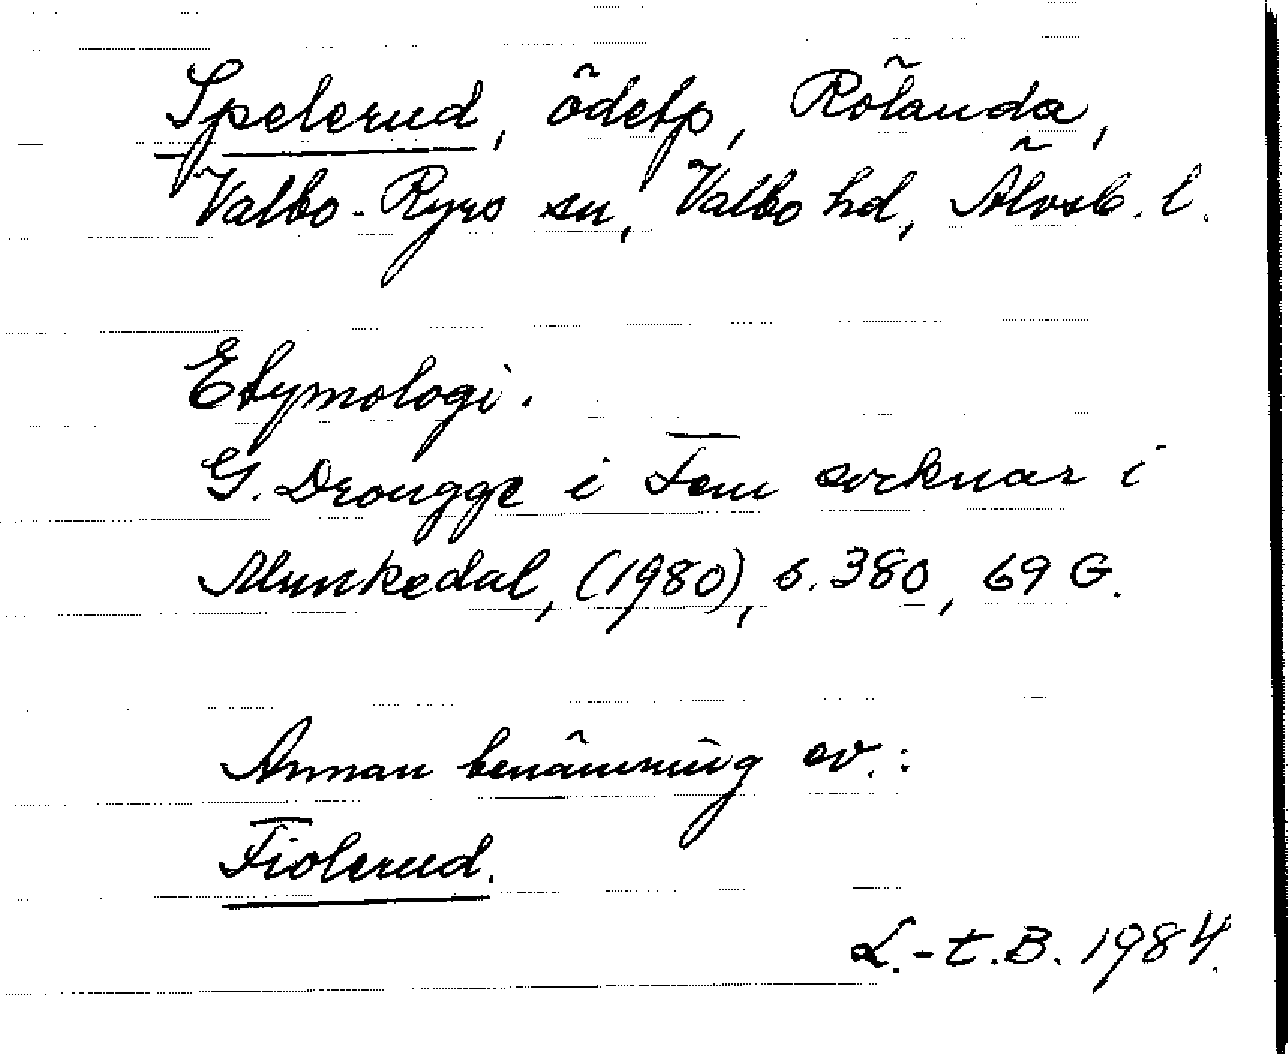 Spelerud, ödetp, Rölanda,
Valbo-Ryrs sn, Valbo hd, Älvsb. l.
Etymologi.
G. Drougge i Fem socknar i
Munkedal, (1980), s. 380, 69 G.
Annan benämning av:
Fiolerud.
L.-t.B. 1984.